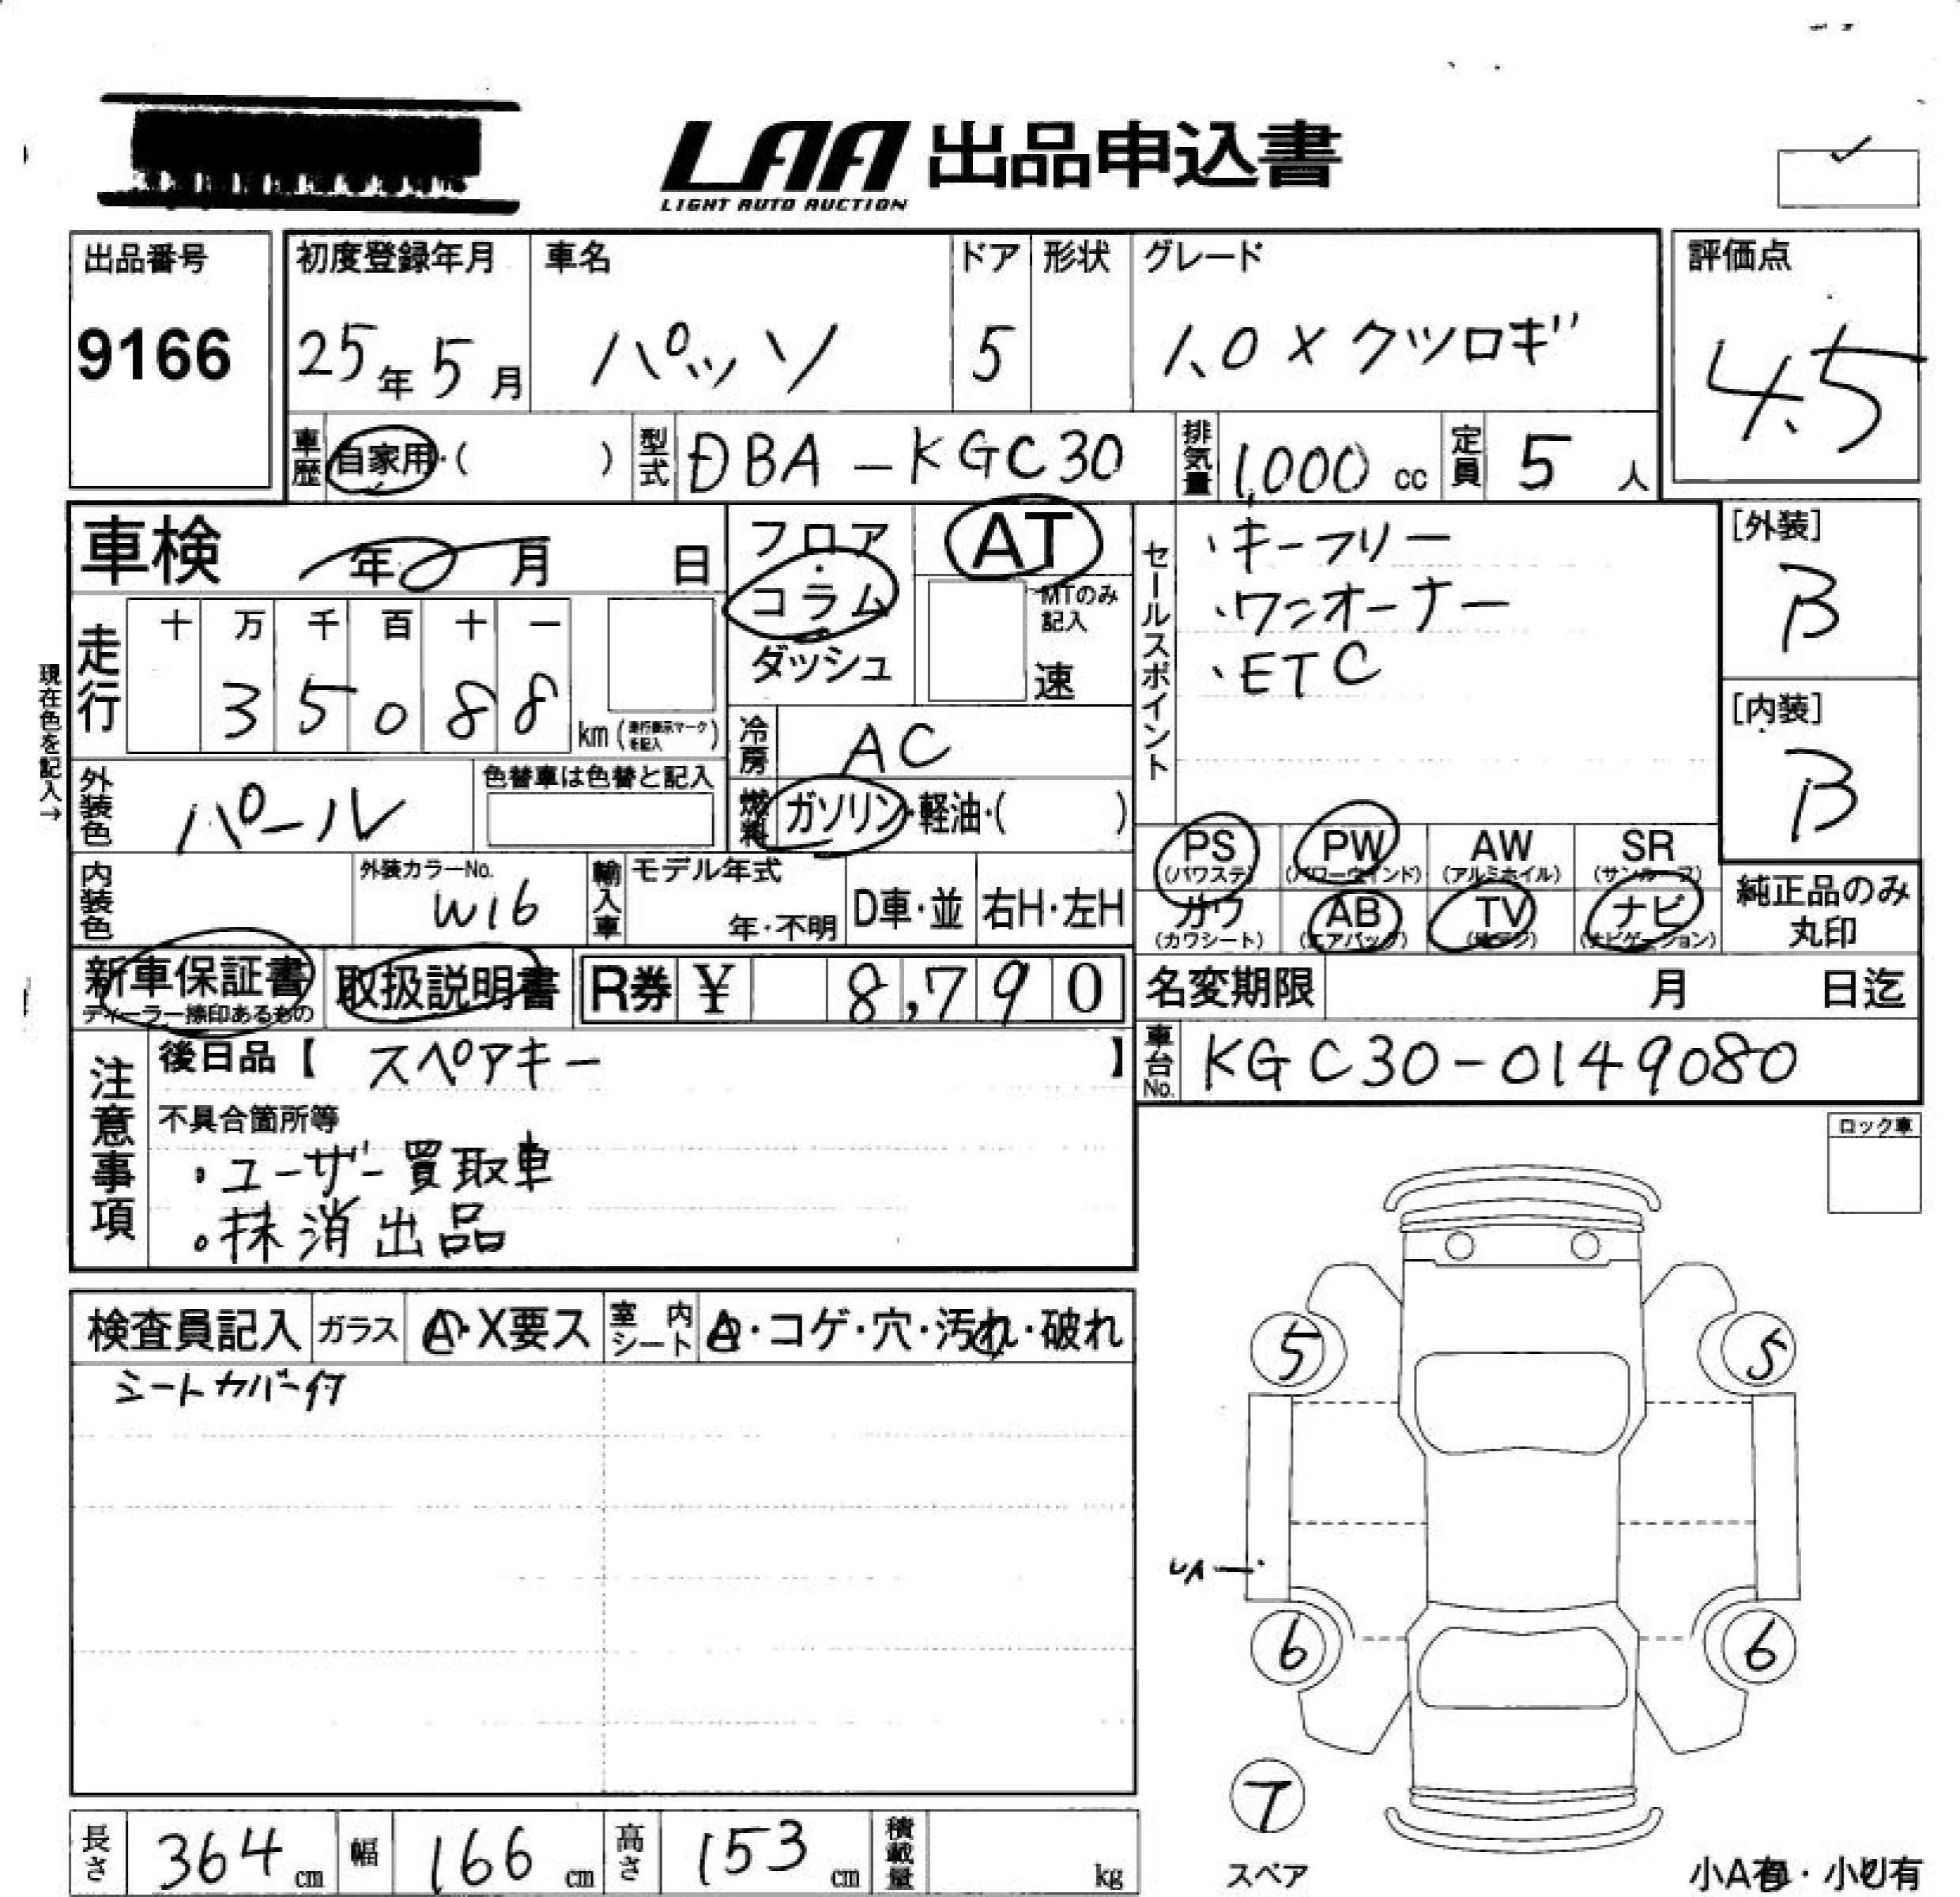 LAA 出品申込書
LIGHT AUTO AUCTION
出品番号
9166
初度登録年月
25年5月
車名
パッソ
ドア
5
形状
グレード
1.0 X クツロギ
評価点
4.5
車歴
自家用・( )
型式
DBA-KGC30
排気量
1,000 cc
定員
5 人
車検 年 月 日
フロア
・
コラム
・
ダッシュ
AT
MTのみ
記入
速
セールスポイント
・キーフリー
・ワンオーナー
・ETC
[外装]
B
[内装]
B
現在色を記入→
走行
十 万 千 百 十 一
3 5 0 8 8
km (走行表示マークを記入)
冷房
AC
外装色
パール
色替車は色替と記入
燃料
ガソリン・軽油・( )
PS
(パワステ)
PW
(パワーウインド)
AW
(アルミホイル)
SR
(サンルーフ)
カワ
(カワシート)
AB
(エアバック)
TV
ナビ
(ナビゲーション)
純正品のみ
丸印
内装色
外装カラーNo.
W16
輸入車
モデル年式
年・不明
D車・並
右H・左H
新車保証書
ディーラー捺印あるもの
取扱説明書
R券 ¥ 8,790
名変期限 月 日迄
車台No.
KGC30-0149080
注意事項
後日品【 スペアキー 】
不具合箇所等
・ユーザー買取車
・抹消出品
ロック車
検査員記入
ガラス
A・X要ス
室内
シート
A・コゲ・穴・汚れ・破れ
シートカバー付
5
5
6
6
7
スペア
長さ
364 cm
幅
166 cm
高さ
153 cm
積載量
kg
小A有・小U有